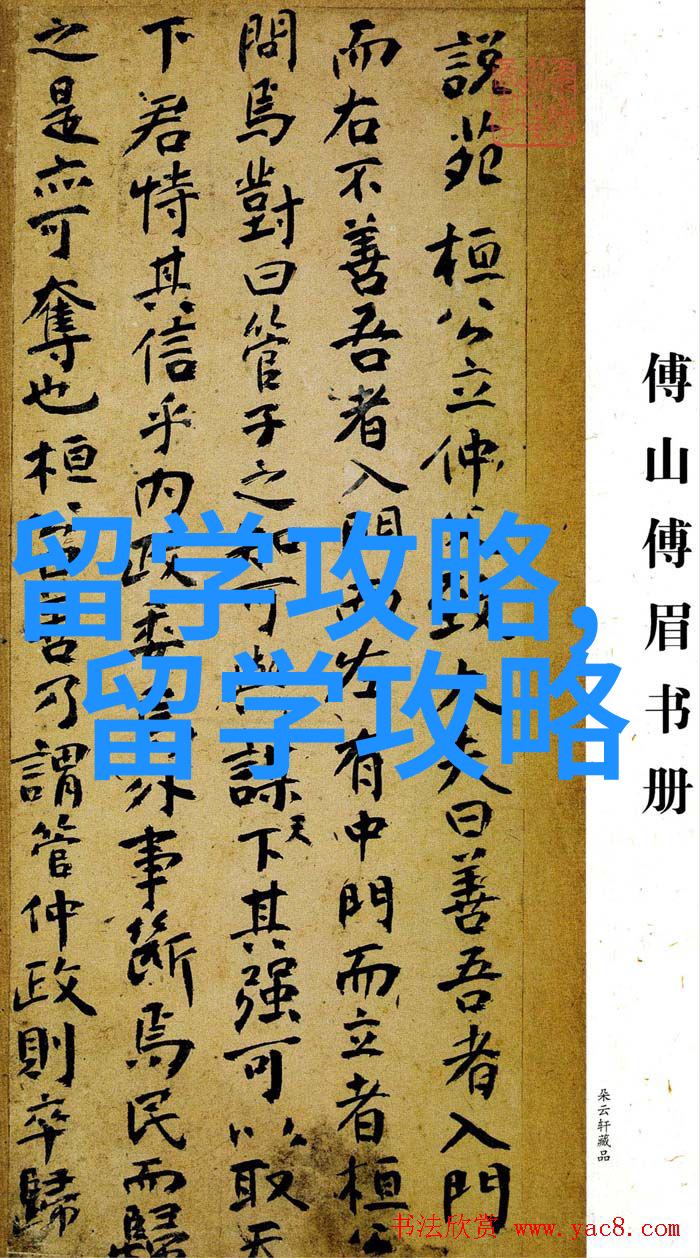 傅山傅眉书册
朵云轩藏品
說苑 桓公立仲父致大夫曰善吾者入門
而右不善吾者入門而左有中門而立者桓公
問焉對曰管子之知可與謀天下其强可以取天
下君恃其信乎内政委焉外事斷焉民而歸
之是亦可奪也桓公曰善乃謂管仲政則卒歸
留学攻略,
留学攻略
书法欣赏 www.yac8.com